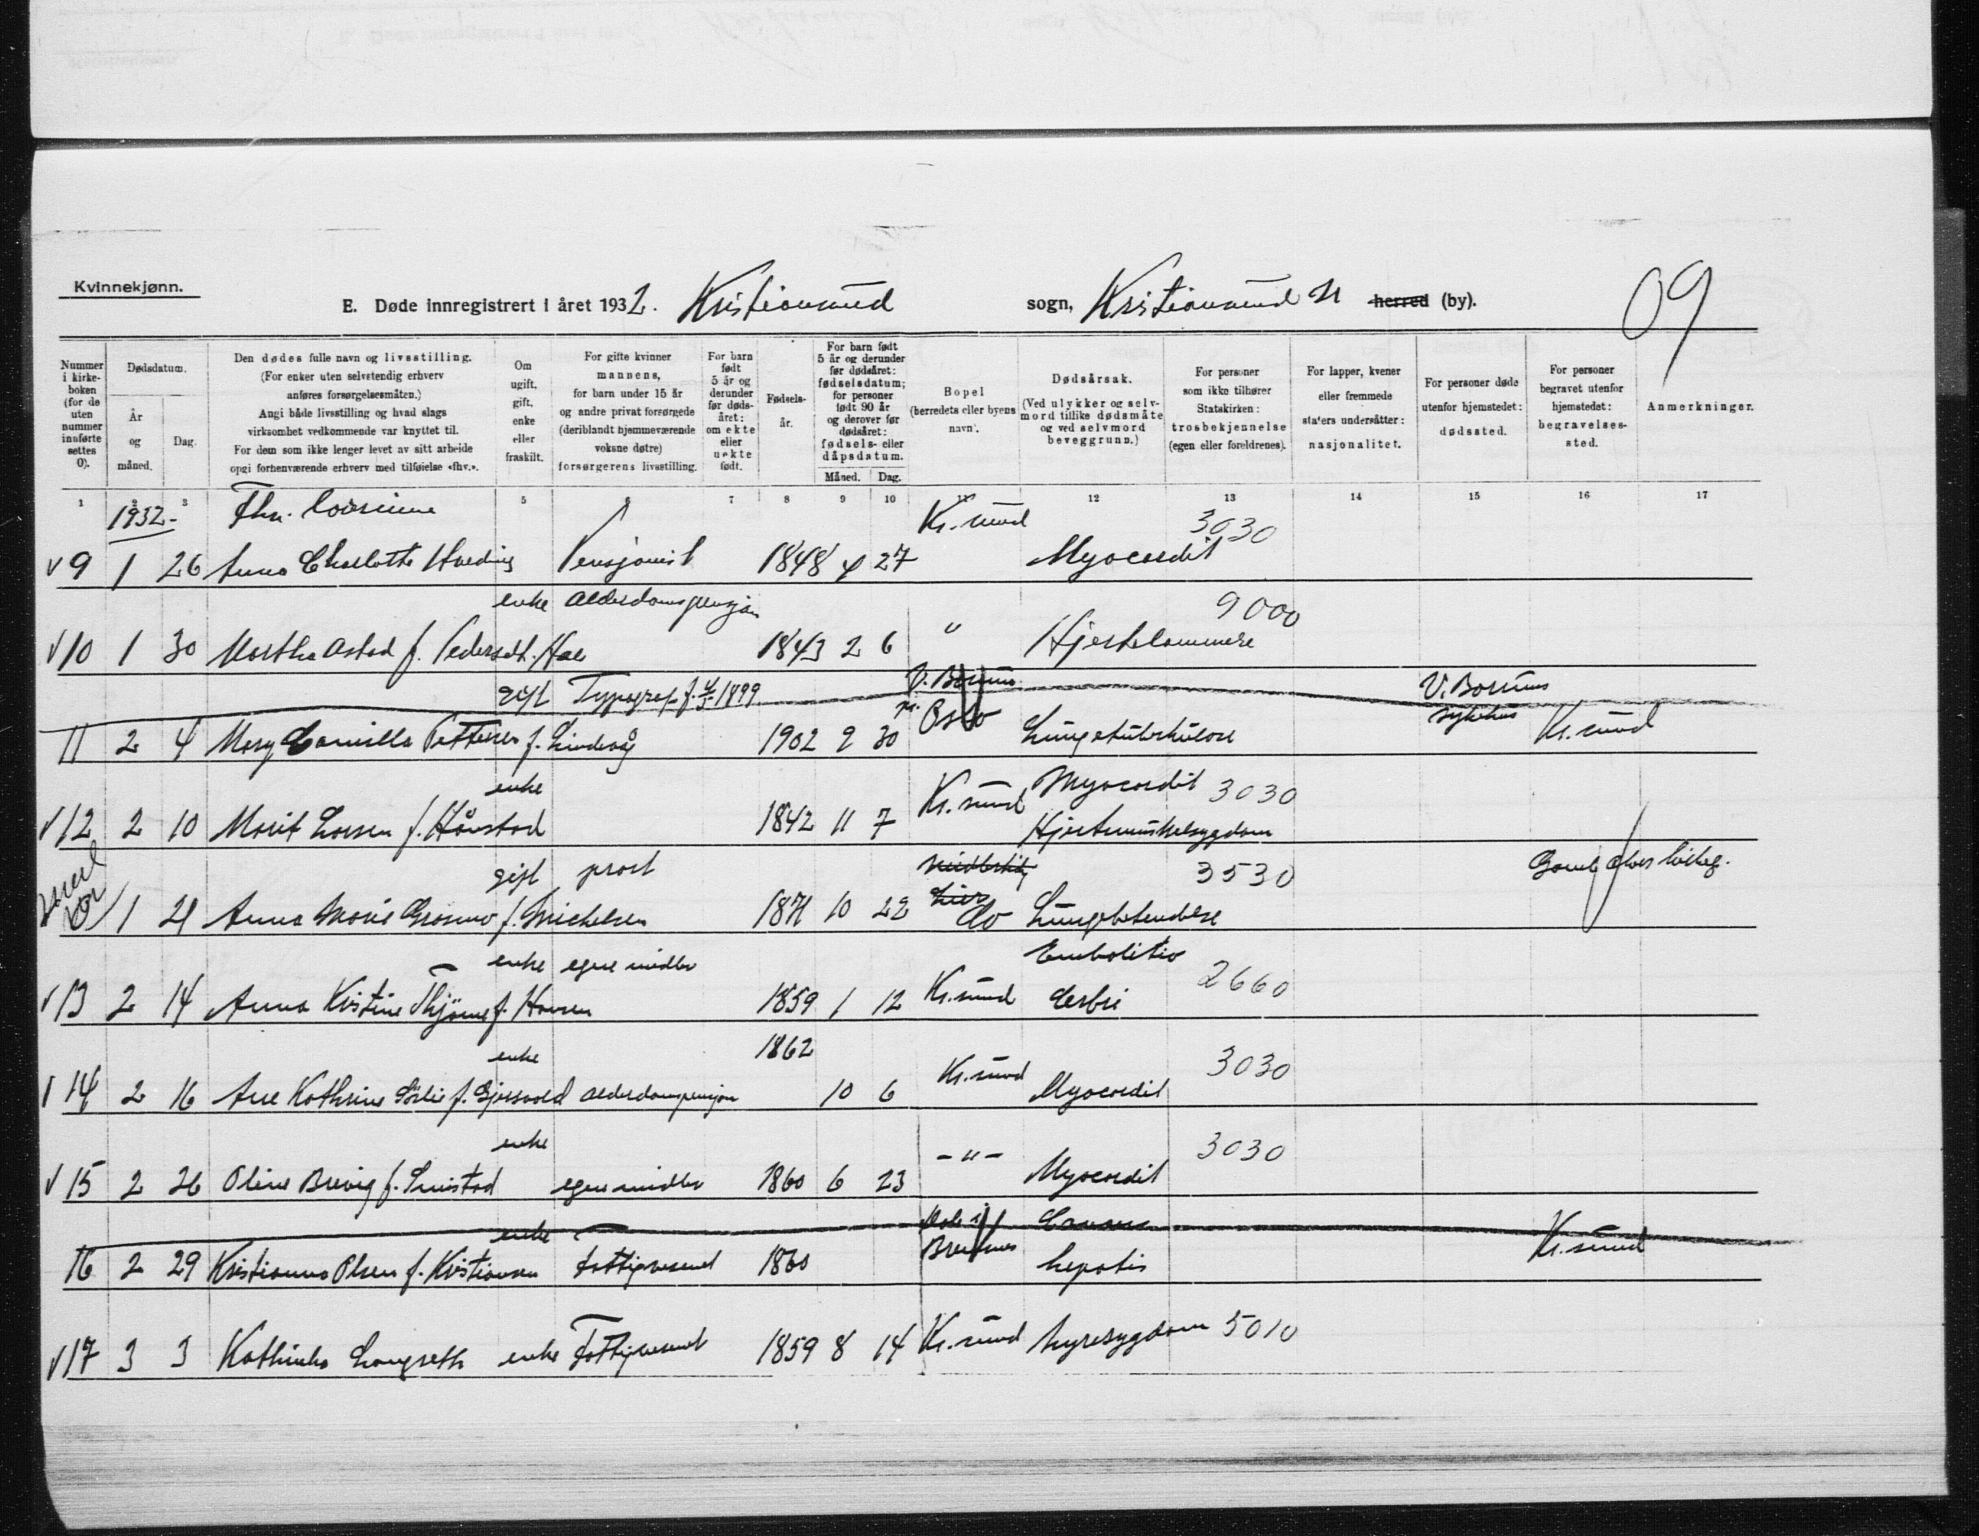 Kvinnekjønn.
E. Døde innregistrert i året 1932. Kristiansund sogn, Kristiansund N herred (by). 09
Nummer i kirkeboken (for de uten nummer innførte settes 0).
Dødsdatum.
År og måned.
Dag.
Den dødes fulle navn og livsstilling.
(For enker uten selvstendig erhverv anføres forsørgelsesmåten.)
Angi både livsstilling og hvad slags virksomhet vedkommende var knyttet til.
For dem som ikke lenger levet av sitt arbeide opgi forhenværende erhverv med tilføielse «fhv.».
Om ugift, gift, enke eller fraskilt.
For gifte kvinner mannens, for barn under 15 år og andre privat forsørgede (deriblandt hjemmeværende voksne døtre) forsørgerens livsstilling.
For barn født 5 år og derunder før dødsåret: om ekte eller uekte født.
Fødselsår.
For barn født 5 år og derunder før dødsåret: fødselsdatum; for personer født 90 år og derover før dødsåret: fødsels- eller dåpsdatum.
Måned. Dag.
Bopel (herredets eller byens navn).
Dødsårsak.
(Ved ulykker og selvmord tillike dødsmåte og ved selvmord beveggrunn.)
For personer som ikke tilhører Statskirken: trosbekjennelse (egen eller foreldrenes).
For lapper, kvener eller fremmede staters undersåtter: nasjonalitet.
For personer døde utenfor hjemstedet: dødssted.
For personer begravet utenfor hjemstedet: begravelsessted.
Anmerkninger.
1 2 3 5 7 8 9 10 11 12 13 14 15 16 17
1932 Fhv. Kr.sund 3030
9 1 26 Anna Charlotte Harding Pensjonist 1848 4 27 Myocardit
enke alderdomspensjon 9000
10 1 30 Martha Astad f. Pedersdt. 1843 2 6 " Hjertelammelse
gift Typograf f. 1899 V. Bærum V. Bærums
11 2 4 Mary Camilla Pettersen f. Lindvåg 1902 9 30 Oslo Lungetuberkulose sykehus Kr.sund
enke Kr.sund Myocardit 3030
12 2 10 Marit Larsen f. Håvstad 1842 11 7 Hjertemuskelsygdom
gift prost 3530 Gamle Akers
1 21 Anna Marie f. Michelsen 1871 10 22 Lier Lungebetendelse
enke egne midler Embolitio
13 2 14 Anna Kristine f. Hansen 1859 1 12 Kr.sund cerbri 2660
enke 1862 Kr.sund 3030
14 2 16 Ane Kathrine Sørlie f. alderdomspensjon 10 6 Myocardit
enke -"- 3030
15 2 26 Oline Brevig f. egne midler 1860 6 23 Myocardit
enke Cancer
16 2 29 Kristianna Olsen f. Kristiansen Fattigvesenet 1860 Bremsnes hepatis Kr.sund
17 3 3 Kathinka Langseth enke Fattigvesenet 1859 8 14 Kr.sund Nyresygdom 5010